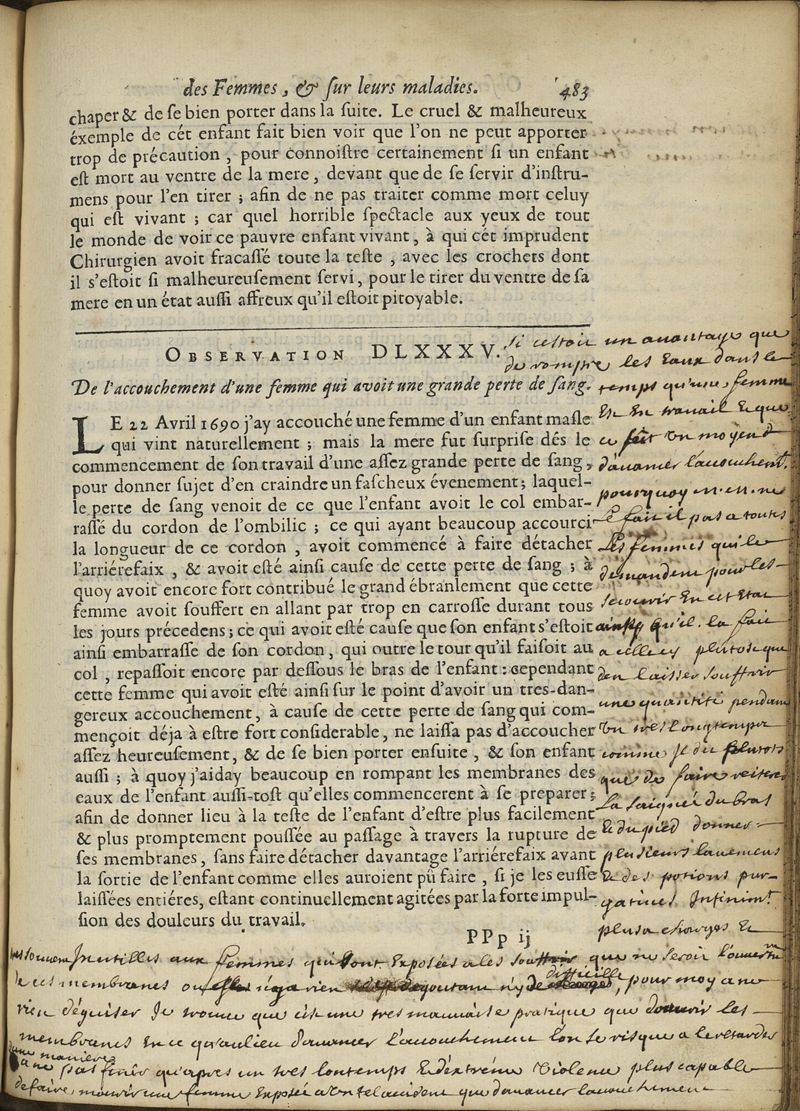 des Femmes, & ſur leurs maladies. 483
chaper & de ſe bien porter dans la ſuite. Le cruel & malheureux
éxemple de cét enfant fait bien voir que l'on ne peut apporter
trop de précaution, pour connoiſtre certainement ſi un enfant
eſt mort au ventre de la mere, devant que de ſe ſervir d'inſtru-
mens pour l'en tirer; afin de ne pas traiter comme mort celuy
qui eſt vivant; car quel horrible ſpectacle aux yeux de tout
le monde de voir ce pauvre enfant vivant, à qui cét imprudent
Chirurgien avoit fracaſſé toute la teſte, avec les crochets dont
il s'eſtoit ſi malheureuſement ſervi, pour le tirer du ventre de ſa
mere en un état auſſi affreux qu'il eſtoit pitoyable.
OBSERVATION DLXXXV.
De l'accouchement d'une femme qui avoit une grande perte de ſang.
LE 22 Avril 1690 j'ay accouché une femme d'un enfant maſle
qui vint naturellement; mais la mere fut ſurpriſe dés le
commencement de ſon travail d'une aſſez grande perte de ſang,
pour donner ſujet d'en craindre un faſcheux évenement; laquel-
le perte de ſang venoit de ce que l'enfant avoit le col embar-
raſſé du cordon de l'ombilic; ce qui ayant beaucoup accourci
la longueur de ce cordon, avoit commencé à faire détacher
l'arriérefaix, & avoit eſté ainſi cauſe de cette perte de ſang; à
quoy avoit encore fort contribué le grand ébranlement que cette
femme avoit ſouffert en allant par trop en carroſſe durant tous
les jours précedens; ce qui avoit eſté cauſe que ſon enfant s'eſtoit
ainſi embarraſſé de ſon cordon, qui outre le tour qu'il faiſoit au
col, repaſſoit encore par deſſous le bras de l'enfant: cependant
cette femme qui avoit eſté ainſi ſur le point d'avoir un tres-dan-
gereux accouchement, à cauſe de cette perte de ſang qui com-
mençoit déja à eſtre fort conſiderable, ne laiſſa pas d'accoucher
aſſez heureuſement, & de ſe bien porter enſuite, & ſon enfant
auſſi; à quoy j'aiday beaucoup en rompant les membranes des
eaux de l'enfant auſſi-toſt qu'elles commencerent à ſe préparer;
afin de donner lieu à la teſte de l'enfant d'eſtre plus facilement
& plus promptement pouſſée au paſſage à travers la rupture de
ſes membranes, ſans faire détacher davantage l'arriérefaix avant
la ſortie de l'enfant comme elles auroient pû faire, ſi je les euſſe
laiſſées entiéres, eſtant continuellement agitées par la forte impul-
ſion des douleurs du travail.
PPp ij
si cestoit un auantage que
de rompre les Eaux dans le
temps qu'une femme
Est En trauail Et que
ce fut un moyen
d'auancer l'acouchemt.
pourquoy m. m. ne
le fait il pas a toutes
les femmes qui le
demandent pour les
secourir En cet Etat
ainsy qu'il la fait
a celley plutost que
den laisser souffrir
une quantité pendant
un tres longtemps
comme Je du plutots
que de faire reiterer
la saignée du bras
Et du pied donner
plusieurs lauemens
Et des potions pur-
gatiues Infinimt.
plus a charges Et
Inutilles aux femmes qui sont Exposées a les souffrir que ne seroit l'ouuertur
de ces membranes ou n'y a rien degoutant n'y de difficille, pour moy a ne
rien déguiser Je trouue que c'est une tres mauuaise pratique que douurir les
membranes En ce qu'aulieu d'auancer l'acouchement l'on se risque a le retarder
une maniere
a ne pas finir qu'apres un tres lontemps Et d'extreme Violence plus capable
de faire mourir une femme Exposée a un tel accident que d'auancer l'acouchement